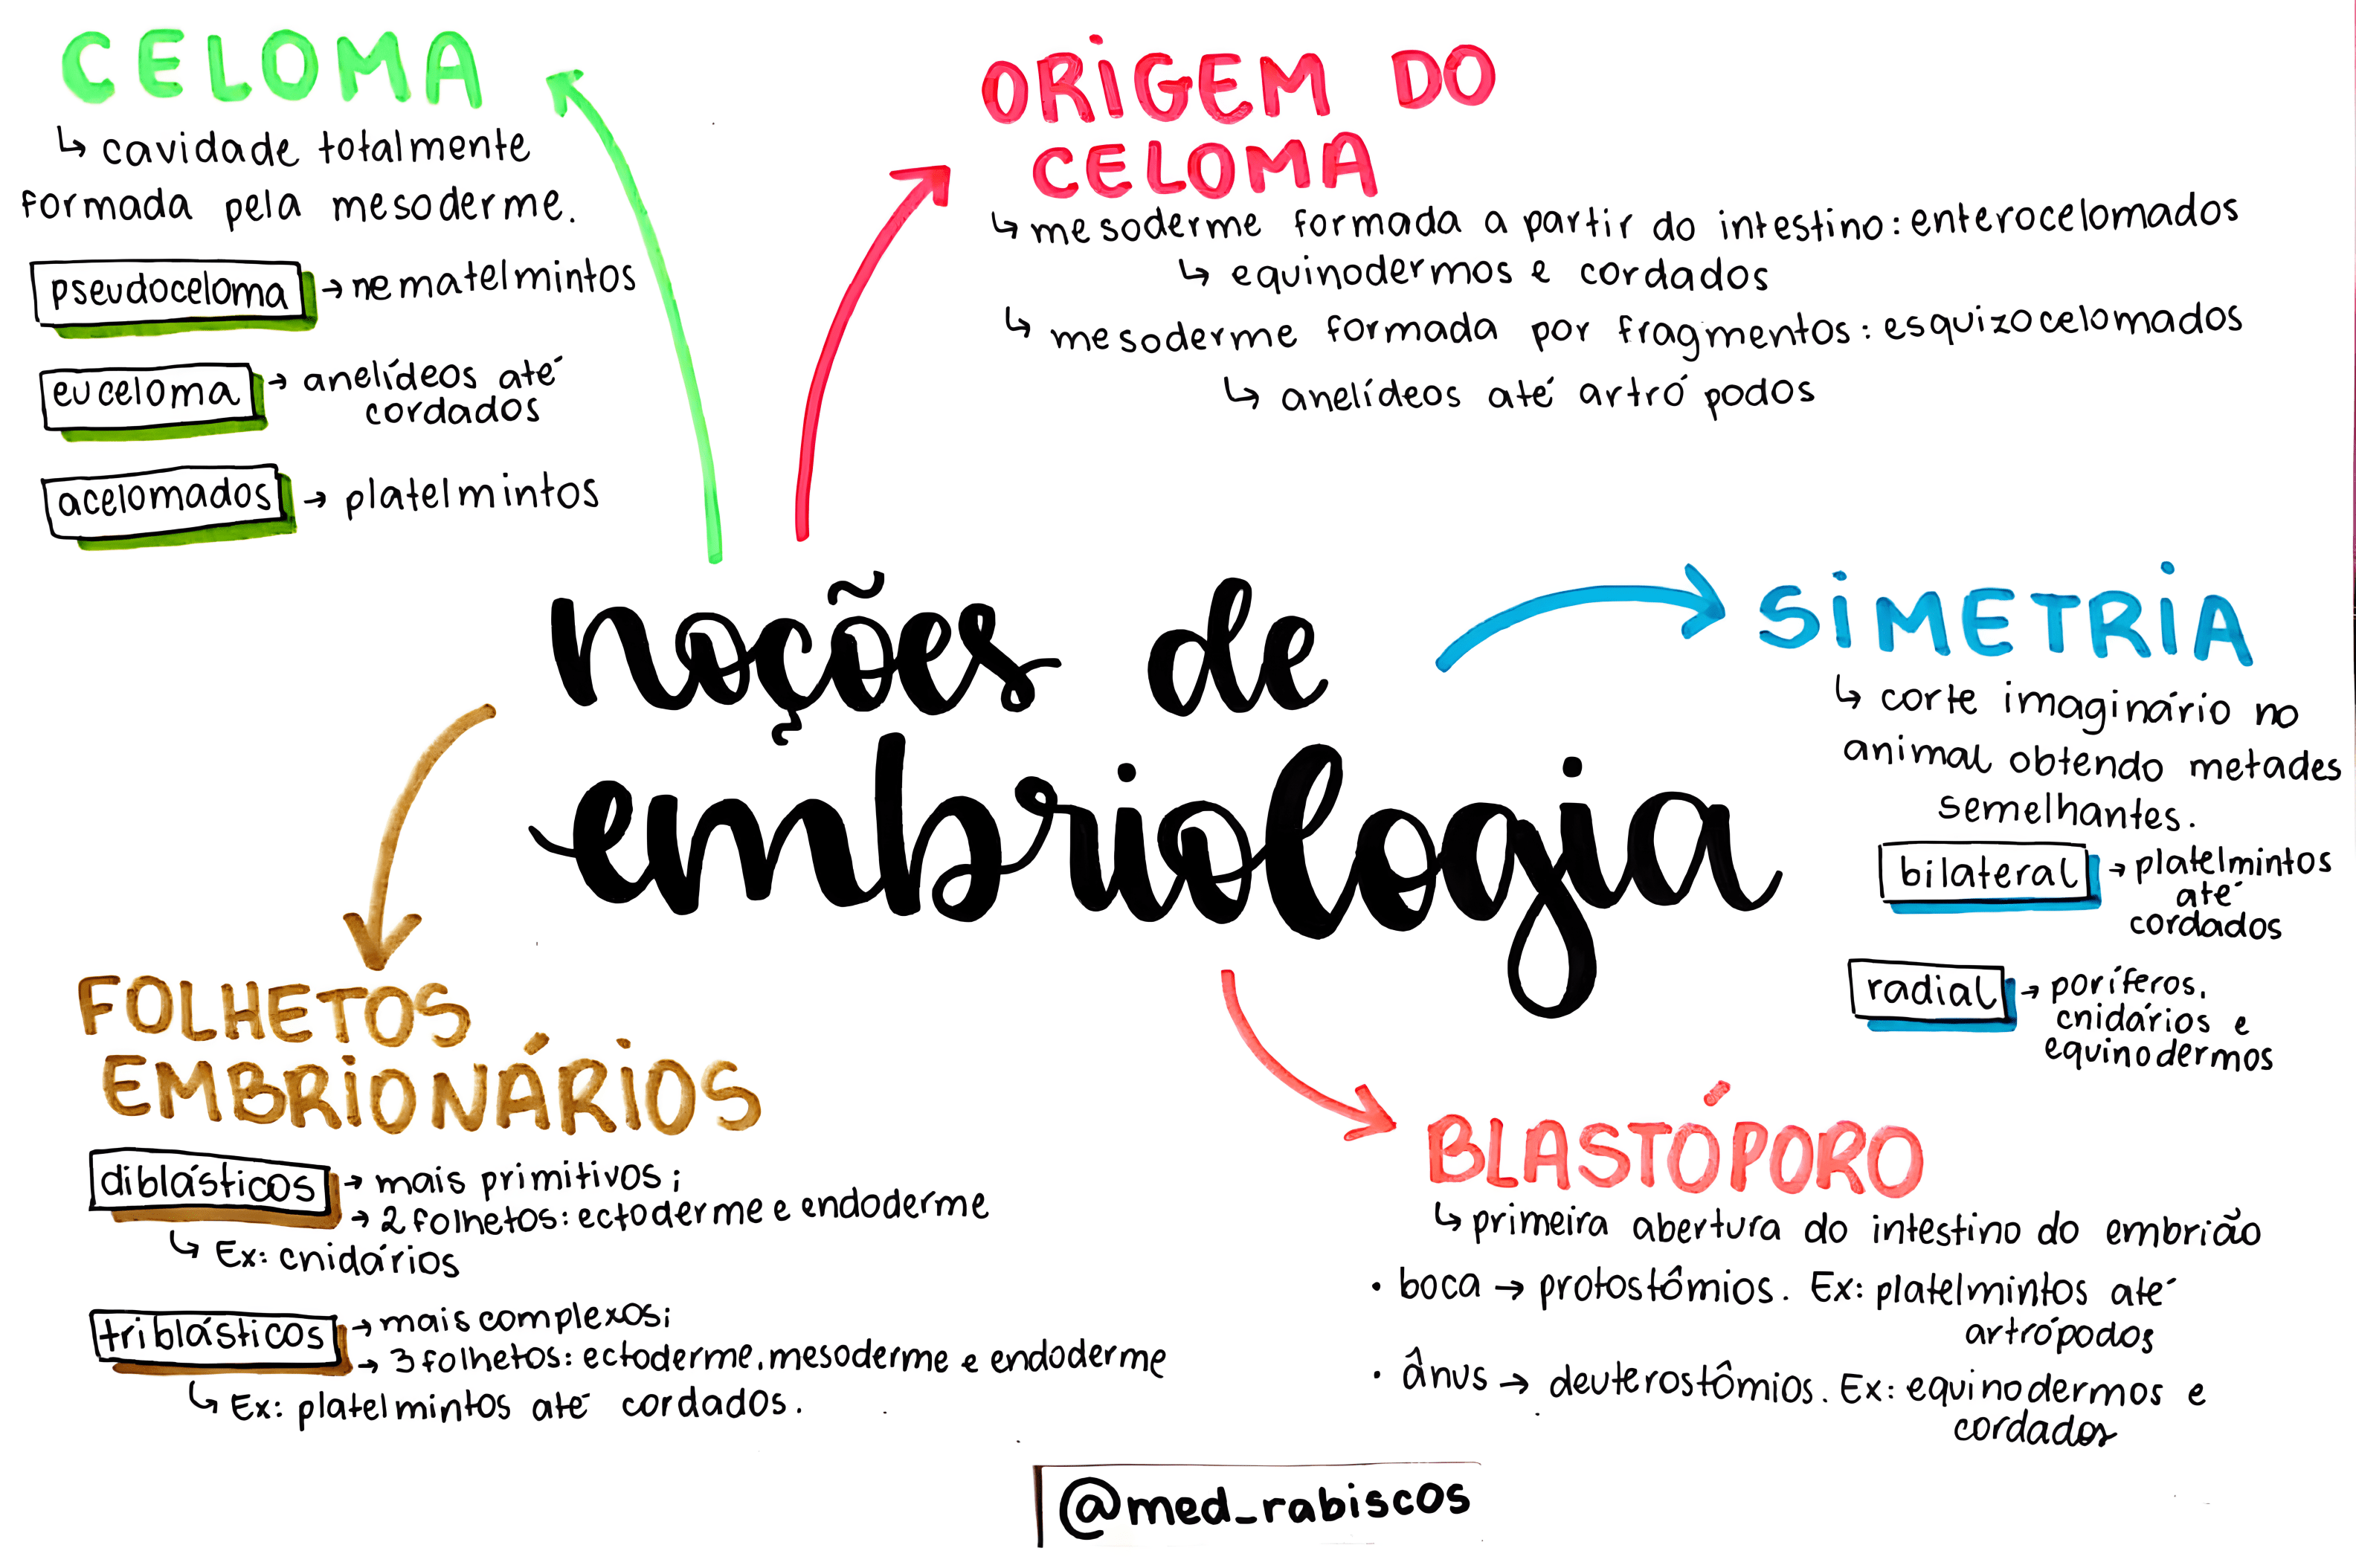 CELOMA
↳ cavidade totalmente
formada pela mesoderme.
pseudoceloma → nematelmintos
euceloma → anelídeos até
cordados
acelomados → platelmintos
ORIGEM DO
CELOMA
↳ mesoderme formada a partir do intestino: enterocelomados
↳ equinodermos e cordados
↳ mesoderme formada por fragmentos: esquizocelomados
↳ anelídeos até artrópodos
noções de
embriologia
SIMETRIA
↳ corte imaginário no
animal obtendo metades
semelhantes.
bilateral → platelmintos
até
cordados
radial → poríferos,
cnidários e
equinodermos
FOLHETOS
EMBRIONÁRIOS
diblásticos → mais primitivos;
→ 2 folhetos: ectoderme e endoderme
↳ Ex: cnidários
triblásticos → mais complexos;
→ 3 folhetos: ectoderme, mesoderme e endoderme
↳ Ex: platelmintos até cordados.
BLASTÓPORO
↳ primeira abertura do intestino do embrião
• boca → protostômios. Ex: platelmintos até
artrópodos
• ânus → deuterostômios. Ex: equinodermos e
cordados
@med_rabiscos